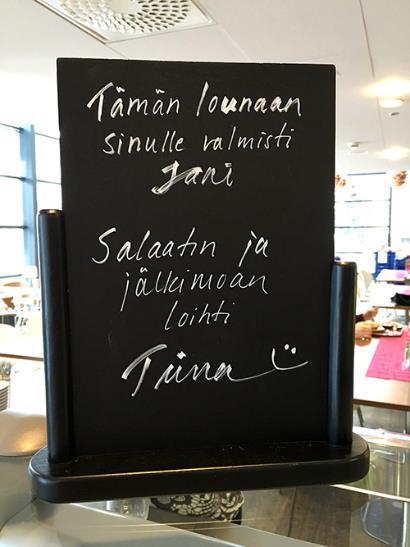 Tämän lounaan
sinulle valmisti
Jani
Salaatin ja
jälkiruoan
loihti
Tiina